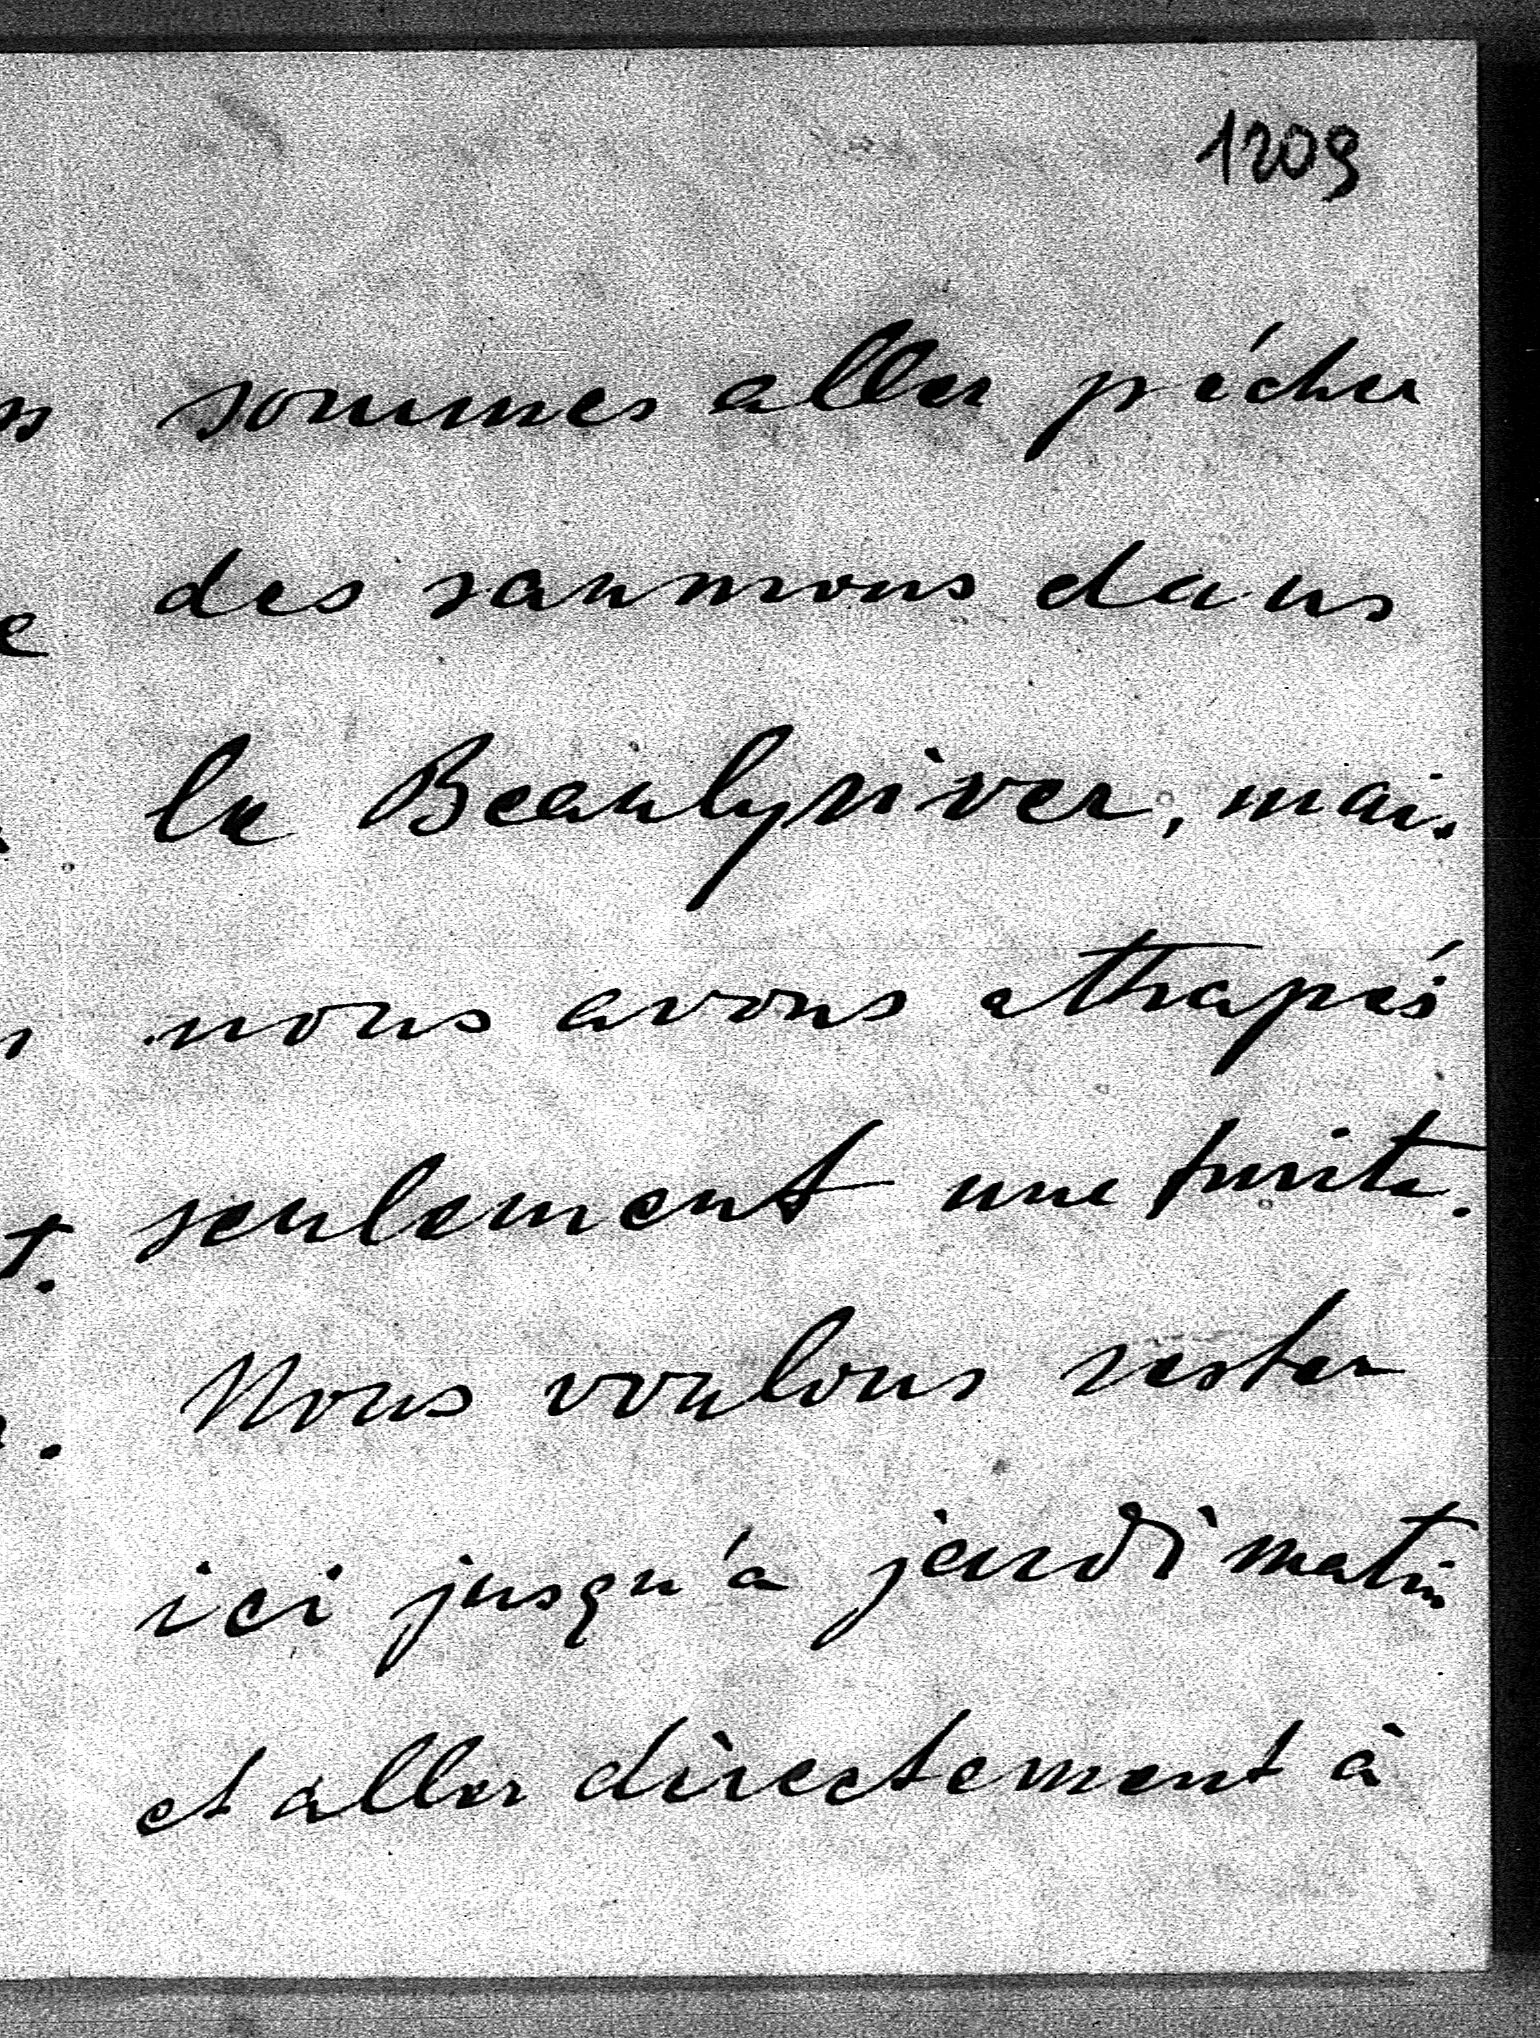 1209
sommes aller pécher
des saumons dans
le Beaulyriver, mais
nous avons athrapés
seulement une truite.
Nous voulons rester
ici jusqu'à jeudi matin
et aller directement à